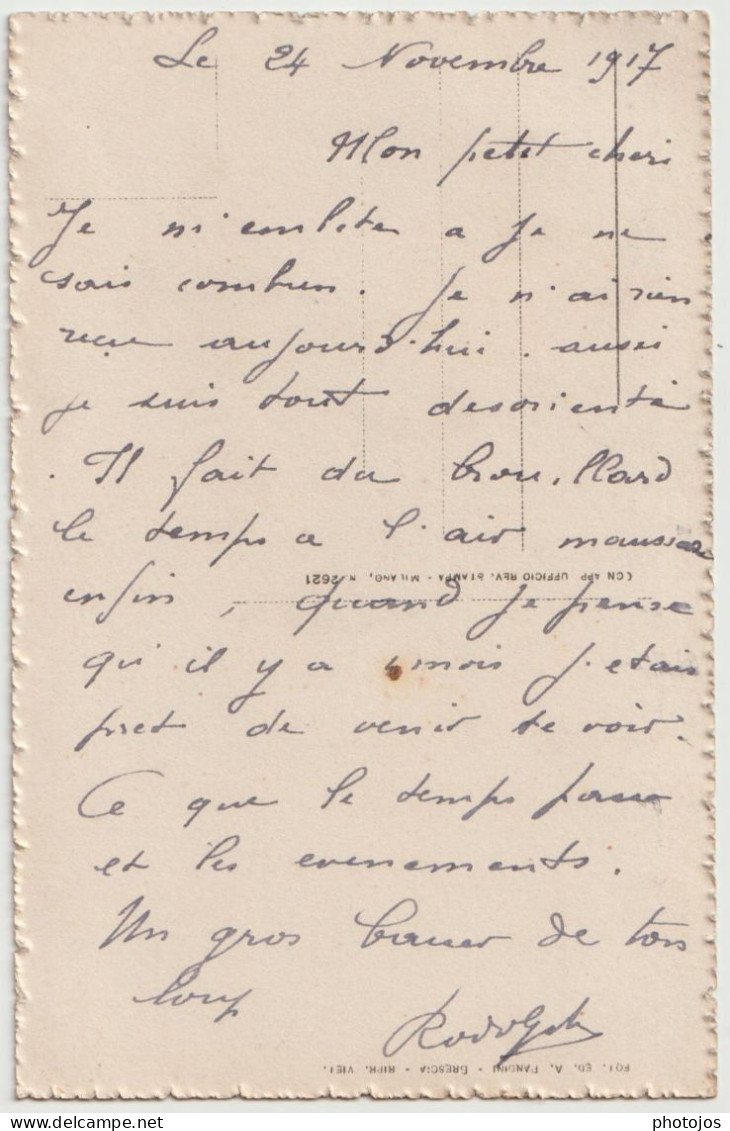 Le 24 Novembre 1917
Mon petit cheri
Je m'embete a je ne
sais combien. Je n'ai rien
reçu aujourd'hui. aussi
je suis tout desorienté
. Il fait du brouillard
le temps a l'air maussade
enfin, quand je pense
qu'il y a mois j'etais
pret de venir te voir.
Ce que le temps passe
et les evenements.
Un gros baiser de ton
loup
Rodolphe
CON APP. UFFICIO REV. STAMPA - MILANO, N. 2621
FOT. ED. A. PANDINI - BRESCIA - RIPR. VIET.
photojos